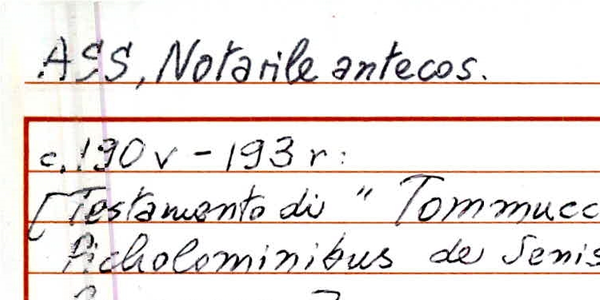 ASS, Notarile antecos.
c. 190 v - 193 r:
[Testamento di " Tommucc
Picholominibus de Senis